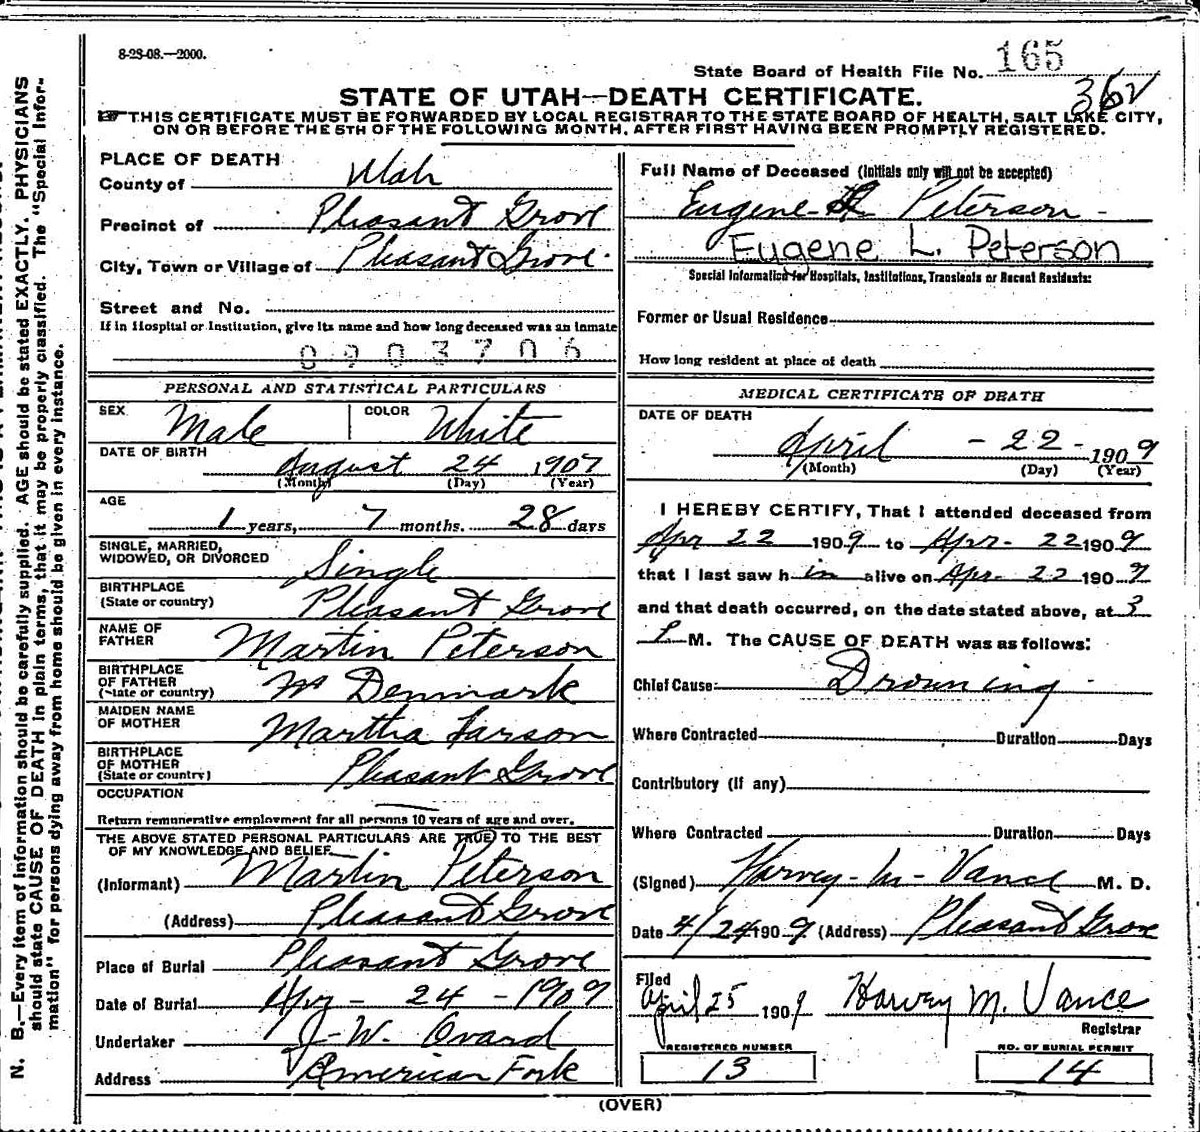 8-28-08.—2000.
State Board of Health File No. 165
36
STATE OF UTAH—DEATH CERTIFICATE.
THIS CERTIFICATE MUST BE FORWARDED BY LOCAL REGISTRAR TO THE STATE BOARD OF HEALTH, SALT LAKE CITY,
ON OR BEFORE THE 5TH OF THE FOLLOWING MONTH, AFTER FIRST HAVING BEEN PROMPTLY REGISTERED.
PLACE OF DEATH
County of Utah
Precinct of Pleasant Grove
City, Town or Village of Pleasant Grove.
Street and No.
If in Hospital or Institution, give its name and how long deceased was an inmate
0903706
PERSONAL AND STATISTICAL PARTICULARS
SEX Male COLOR White
DATE OF BIRTH
August 24 1907
(Month) (Day) (Year)
AGE
1 years, 7 months. 28 days
SINGLE, MARRIED,
WIDOWED, OR DIVORCED Single
BIRTHPLACE
(State or country) Pleasant Grove
NAME OF
FATHER Martin Peterson
BIRTHPLACE
OF FATHER
(State or country) Denmark
MAIDEN NAME
OF MOTHER Martha Larson
BIRTHPLACE
OF MOTHER
(State or country) Pleasant Grove
OCCUPATION
Return remunerative employment for all persons 10 years of age and over.
THE ABOVE STATED PERSONAL PARTICULARS ARE TRUE TO THE BEST
OF MY KNOWLEDGE AND BELIEF
(Informant) Martin Peterson
(Address) Pleasant Grove
Place of Burial Pleasant Grove
Date of Burial Apr - 24 - 1909
Undertaker J. W. Ovard
Address American Fork
Full Name of Deceased (Initials only will not be accepted)
Eugene Peterson
Eugene L. Peterson
Special Information for Hospitals, Institutions, Transients or Recent Residents:
Former or Usual Residence
How long resident at place of death
MEDICAL CERTIFICATE OF DEATH
DATE OF DEATH
April - 22 - 1909
(Month) (Day) (Year)
I HEREBY CERTIFY, That I attended deceased from
Apr 22 1909 to Apr - 22 1909
that I last saw him alive on Apr - 22 1909
and that death occurred, on the date stated above, at 3
P M. The CAUSE OF DEATH was as follows:
Chief Cause: Drowning
Where Contracted Duration Days
Contributory (if any)
Where Contracted Duration Days
(Signed) Harvey M Vance M. D.
Date 4/24 1909 (Address) Pleasant Grove
Filed
April 25 1909 Harvey M. Vance
Registrar
REGISTERED NUMBER NO. OF BURIAL PERMIT
13 14
(OVER)
N. B.—Every item of information should be carefully supplied. AGE should be stated EXACTLY. PHYSICIANS
should state CAUSE OF DEATH in plain terms, that it may be properly classified. The "Special Infor-
mation" for persons dying away from home should be given in every instance.